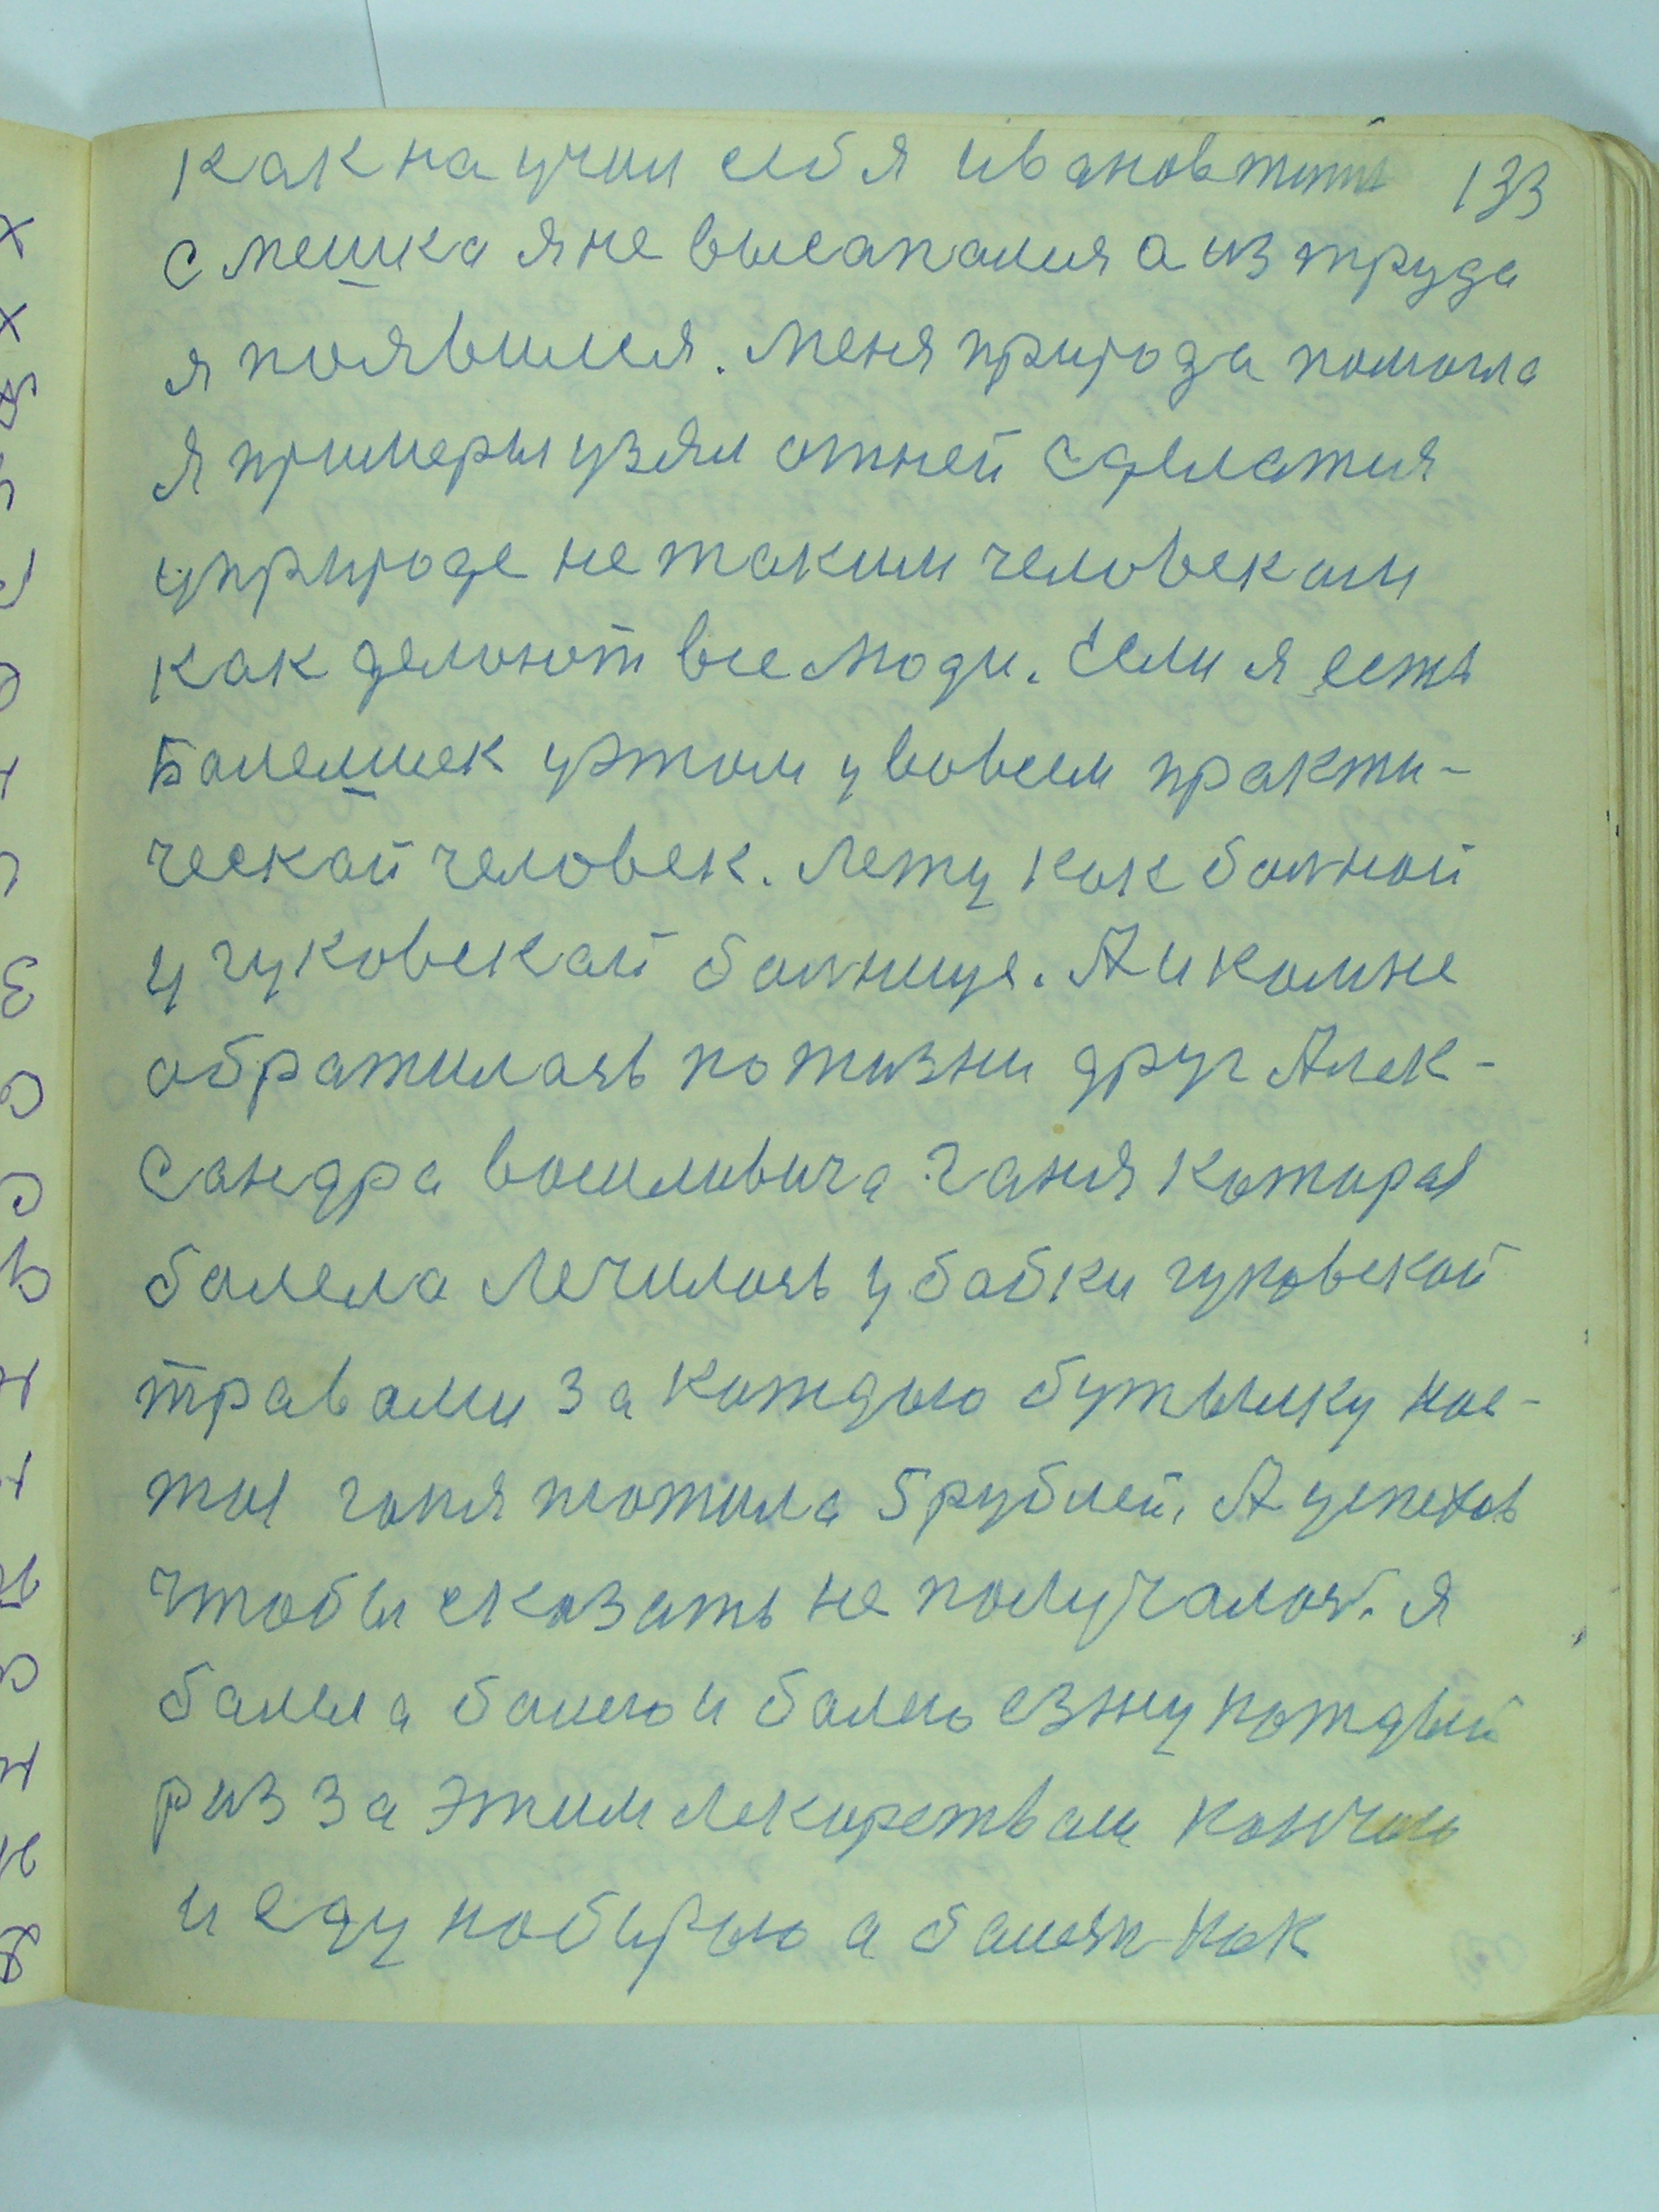 как научил себя ивановжить 133
с мешка я не высапался а из труда
я появился. Меня природа помогла
я примеры узял отней сделатся
уприроде не таким человекам
как делоют все люди. Если я есть
Балельшек уэтом у вовсем практи-
ческай человек. Лежу как балной
у чуковскай балнице. А и комне
обратилась по жизни друг Алек-
сандра василивича Ганя которая
балела лечилась у бабки чуковской
травами за каждыю бутылку нас-
тыя ганя плотила 5 рублей, А успехов
чтобы сказать не получалось. Я
балела балею и балею езжу каждый
раз за этим лекарствам кончаю
и еду набираю а балезн как